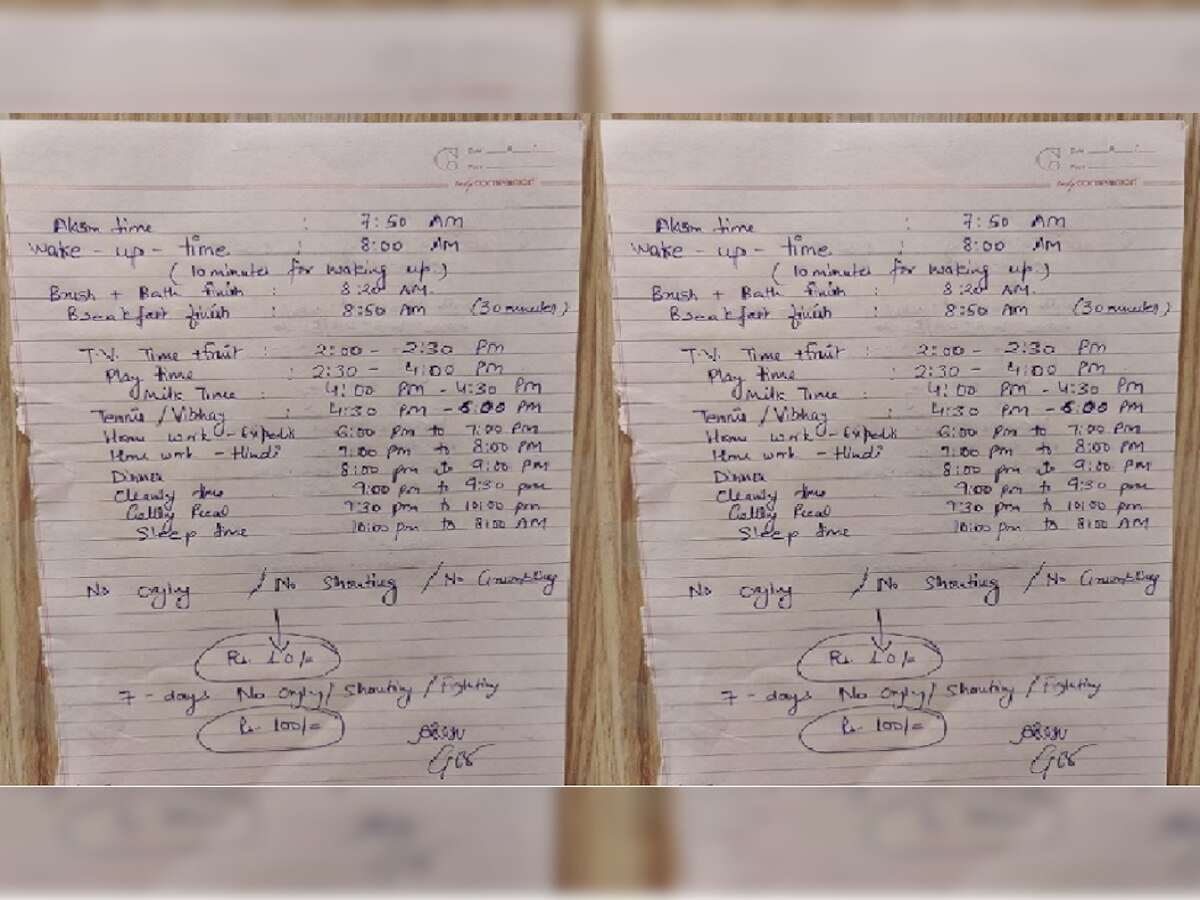 Alarm time : 7:50 AM
Wake - up - time : 8:00 AM
(10 minutes for waking up)
Brush + Bath finish : 8:20 AM.
Breakfast finish : 8:50 AM (30 minutes)
T.V. Time + fruit : 2:00 - 2:30 PM
Play time : 2:30 - 4:00 PM
Milk Time : 4:00 PM - 4:30 PM
Tennis / Vibhay : 4:30 PM - 6:00 PM
Home work - 6:00 PM to 7:00 PM
Home work - Hindi 7:00 PM to 8:00 PM
Dinner 8:00 pm to 9:00 PM
Cleaning time 9:00 pm to 9:30 pm
9:30 pm to 10:00 pm
Sleep time 10:00 pm to 8:00 AM
No Crying / No Shouting / No Grumbling
Rs. 10/=
7 - days No Crying / Shouting / Fighting
Rs. 100/=
Alarm time : 7:50 AM
Wake - up - time : 8:00 AM
(10 minutes for waking up)
Brush + Bath finish : 8:20 AM.
Breakfast finish : 8:50 AM (30 minutes)
T.V. Time + fruit : 2:00 - 2:30 PM
Play time : 2:30 - 4:00 PM
Milk Time : 4:00 PM - 4:30 PM
Tennis / Vibhay : 4:30 PM - 6:00 PM
Home work - 6:00 PM to 7:00 PM
Home work - Hindi 7:00 PM to 8:00 PM
Dinner 8:00 pm to 9:00 PM
Cleaning time 9:00 pm to 9:30 pm
9:30 pm to 10:00 pm
Sleep time 10:00 pm to 8:00 AM
No Crying / No Shouting / No Grumbling
Rs. 10/=
7 - days No Crying / Shouting / Fighting
Rs. 100/=